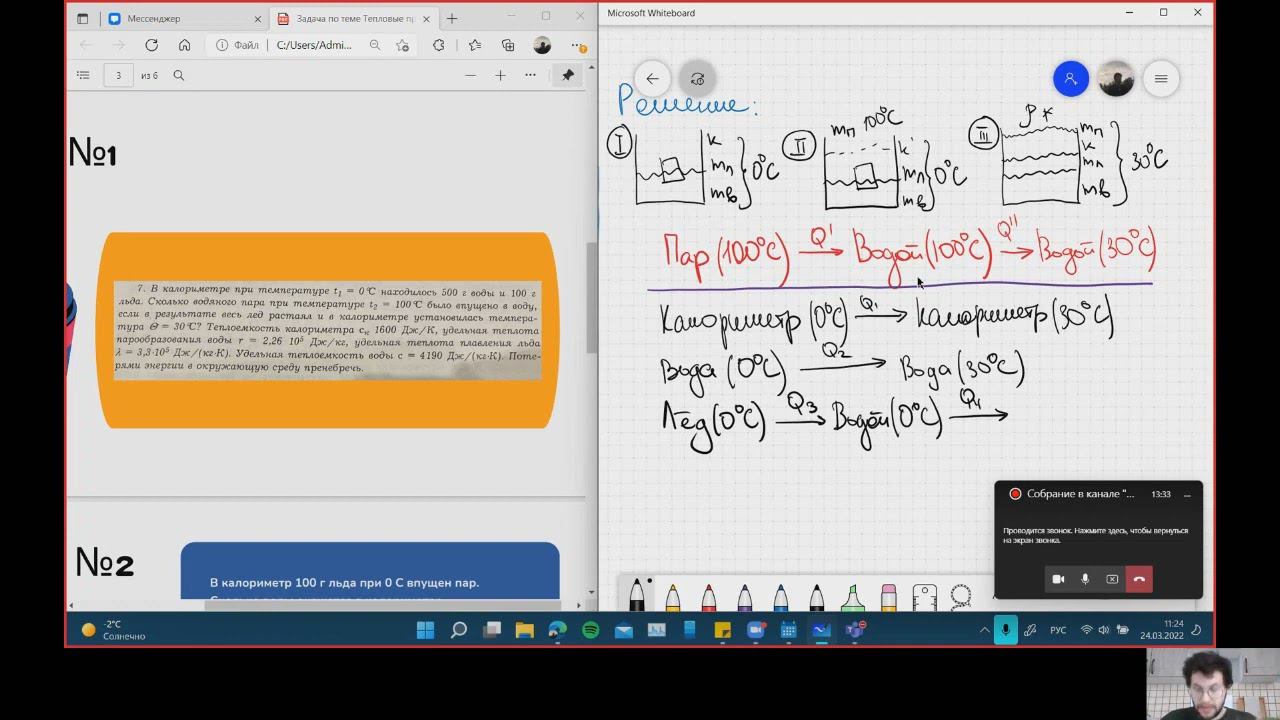 Мессенджер
Задача по теме Тепловые пр
Microsoft Whiteboard
Файл
C:/Users/Admi...
3 из 6
Решение:
I
к
mл
mв
0°C
II
mп 100°C
к
mл
mв
0°C
III
mп
к
mл
mв
30°C
№1
Пар (100°C) Q' Водой (100°C) Q'' Водой (30°C)
7. В калориметре при температуре t₁ = 0°C находилось 500 г воды и 100 г
льда. Сколько водяного пара при температуре t₂ = 100°C было впущено в воду,
если в результате весь лед растаял и в калориметре установилась темпера-
тура Θ = 30°C? Теплоемкость калориметра cк 1600 Дж/К, удельная теплота
парообразования воды r = 2,26 10⁵ Дж/кг, удельная теплота плавления льда
λ = 3,3·10⁵ Дж/(кг·К). Удельная теплоемкость воды c = 4190 Дж/(кг·К). Поте-
рями энергии в окружающую среду пренебречь.
Калориметр (0°C) Q₁ Калориметр (30°C)
Вода (0°C) Q₂ Вода (30°C)
Лёд (0°C) Q₃ Водой (0°C) Q₄
№2
В калориметр 100 г льда при 0 С впущен пар.
Собрание в канале "...
13:33
Проводится звонок. Нажмите здесь, чтобы вернуться
на экран звонка.
-2°C
Солнечно
РУС
11:24
24.03.2022